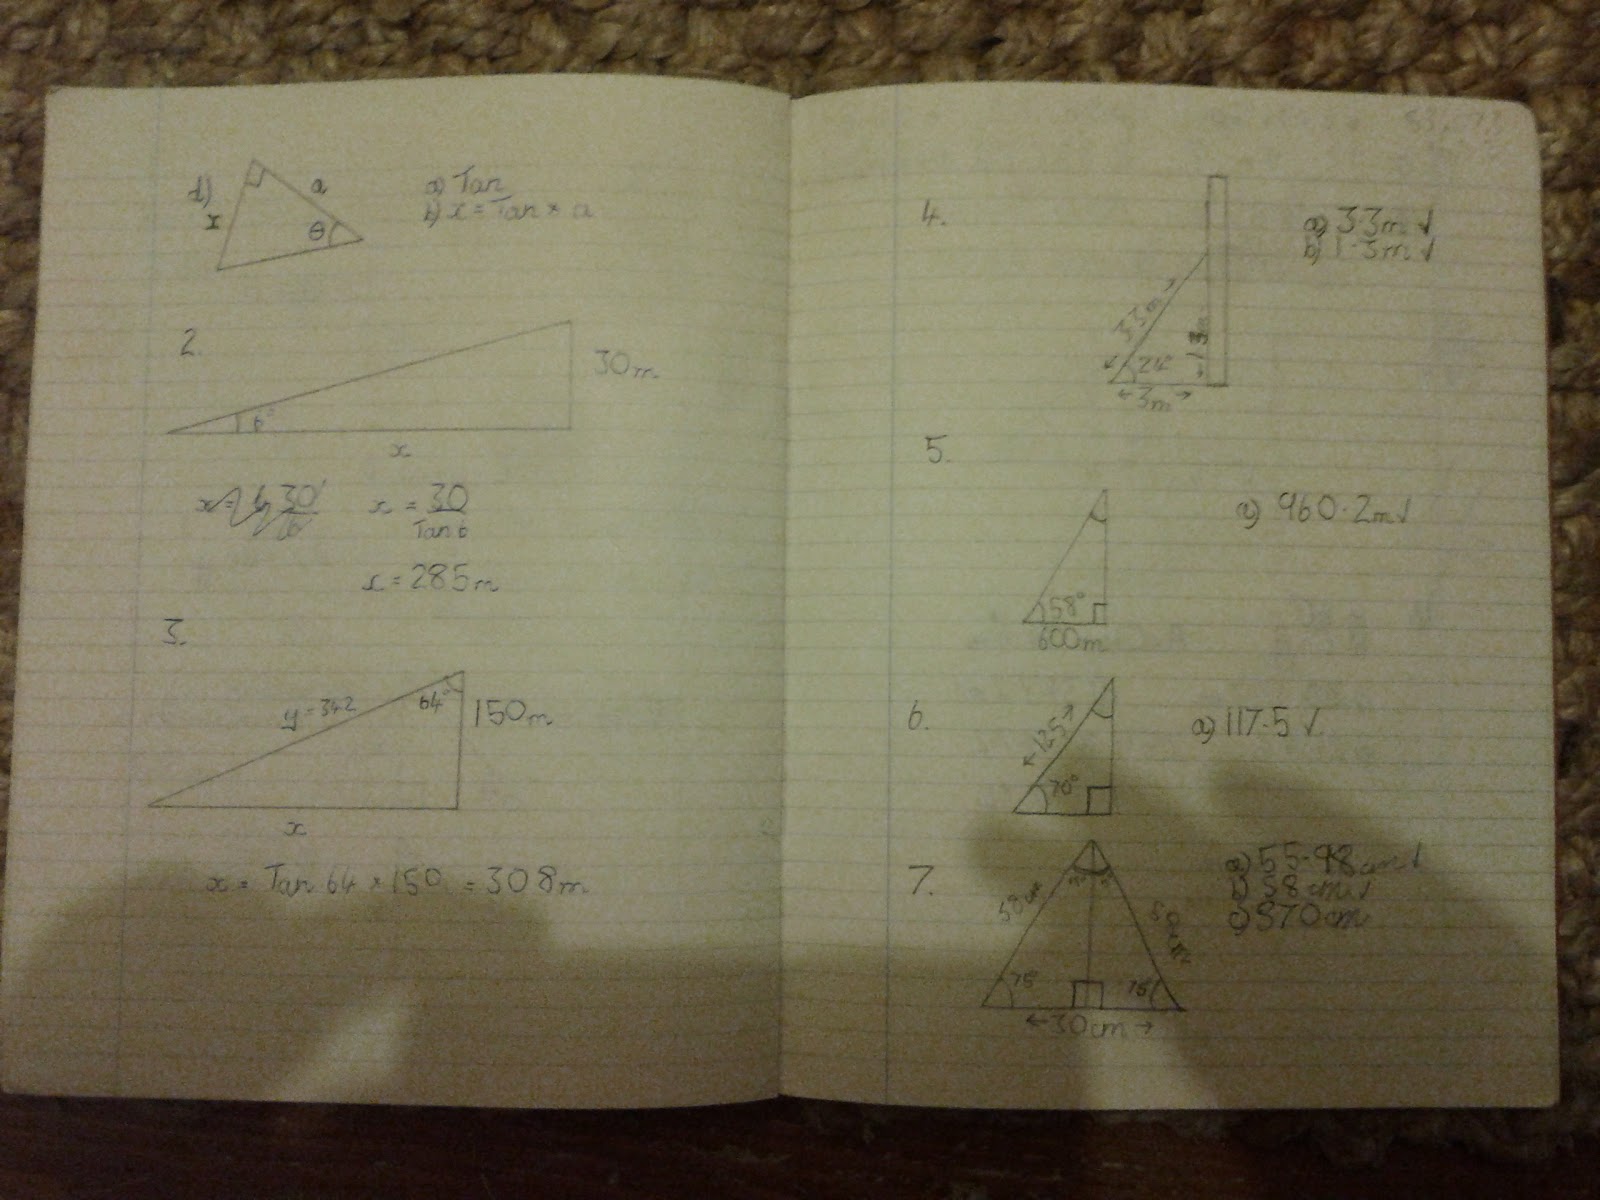 d)
a
x
θ
a) Tan
b) x = Tan × a
2.
30m
6°
x
x = 30
Tan 6
x = 285m
3.
y = 342
64°
150m
x
x = Tan 64 × 150 = 308m
4.
3.3m
24°
1.3m
3m
a) 3.3m ✓
b) 1.3m ✓
5.
58°
600m
a) 960.2m ✓
6.
125
70°
a) 117.5 ✓
7.
58cm
75°
75°
30cm
a) 55.98cm ✓
b) 58cm ✓